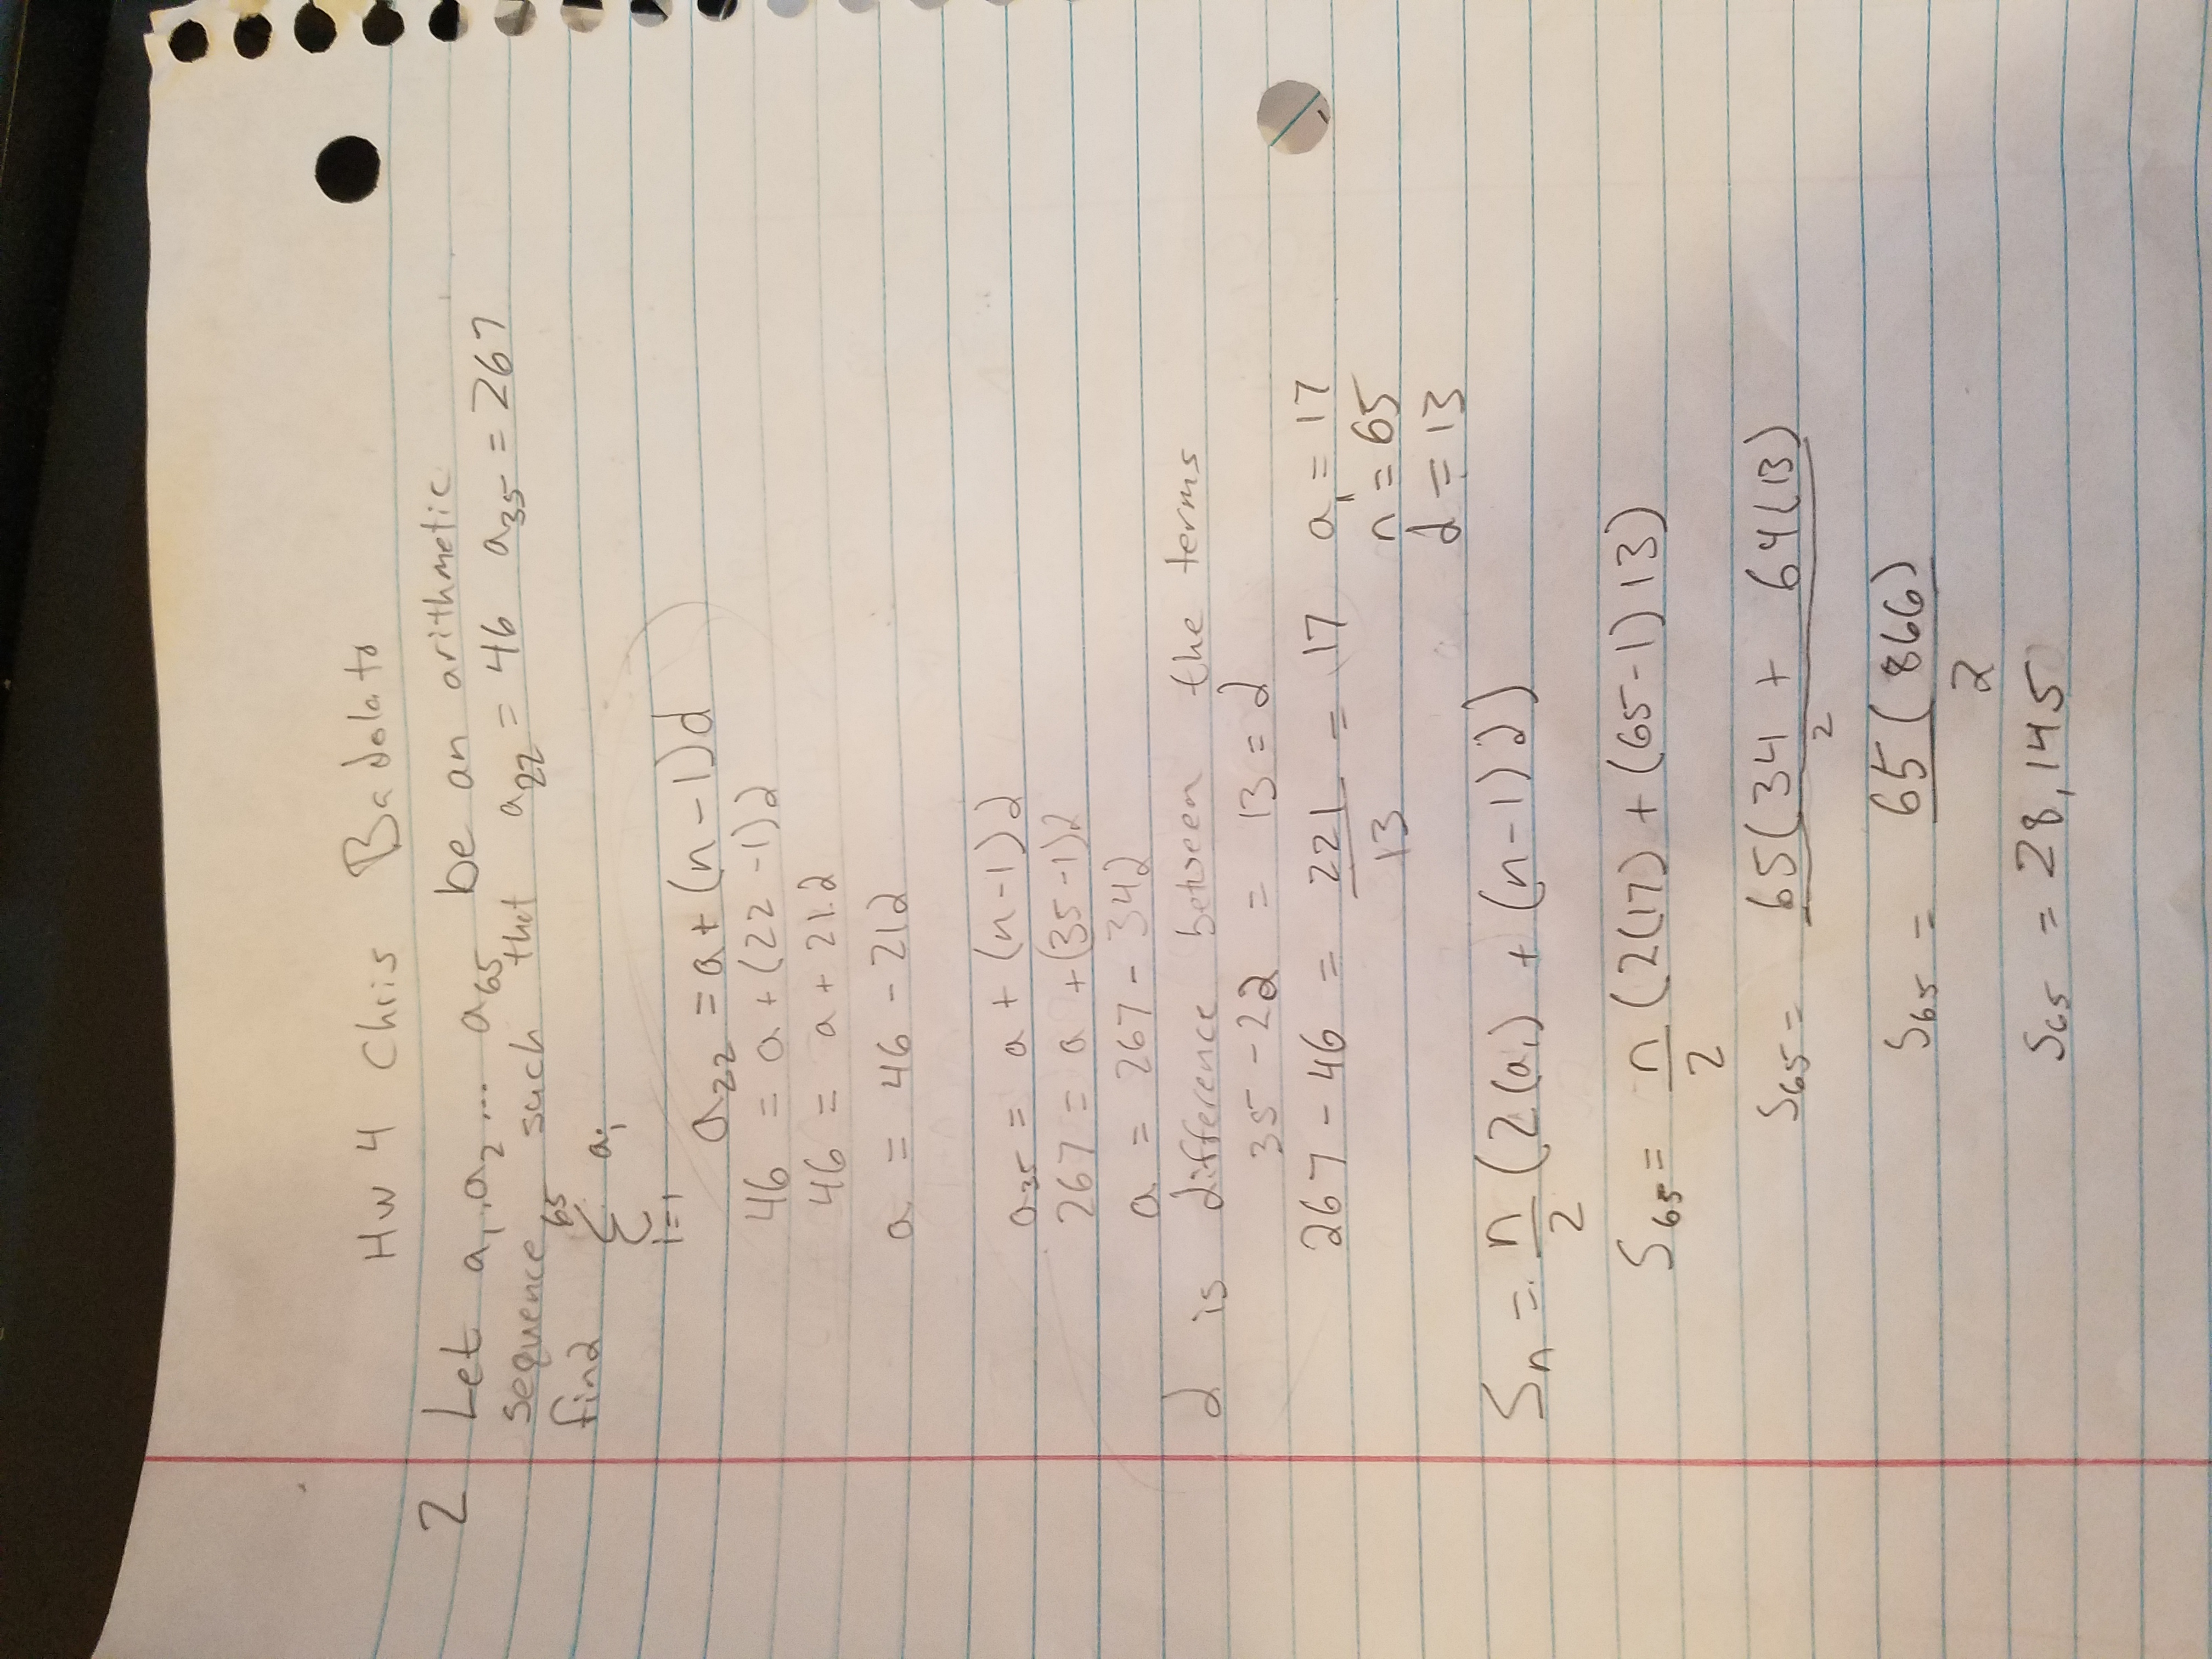 Hw 4 Chris Badolato
2 Let a₁, a₂ ... a₆₅ be an arithmetic
sequence such that a₂₂ = 46 a₃₅ = 267
find 65 Σ i=1 aᵢ
a₂₂ = a + (n-1)d
46 = a + (22-1)d
46 = a + 21.d
a = 46 - 21d
a₃₅ = a + (n-1)d
267 = a + (35-1)d
a = 267 - 34d
d is difference between the terms
35 - 22 = 13 = d
267 - 46 = 221/13 = 17 a₁ = 17
n = 65
d = 13
Sₙ = n/2 (2(a₁) + (n-1)d)
S₆₅ = n/2 (2(17) + (65-1)13)
S₆₅ = 65(34 + 64(13)/2
S₆₅ = 65(866)/2
S₆₅ = 28,145